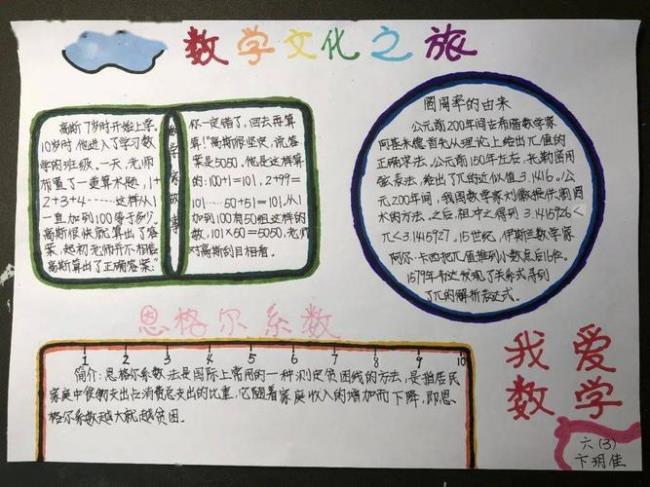 数学文化之旅
数学家故事
高斯7岁时开始上学。
10岁时他进入了学习数
学的班级。一天,老师
布置了一道算术题,1+
2+3+4……这样从1
一直加到100等于多少。
高斯很快就算出了答
案,起初老师并不相信
高斯算出了正确答案:
你一定错了,回去再算
算!"高斯非坚定,说答
案是5050,他是这样算
的:100+1=101,2+99=
101……50+51=101,从1
加到100有50组这样的
数,101×50=5050,老师
对高斯刮目相看。
圆周率的由来
公元前200年间古希腊数学家
阿基米德首先从理论上给出π值的
正确求法。公元前150年左右,
弦表法,给出了π的近似值3.1416。公
元200年间,我国数学家刘徽提供割圆
术的方法,之后,祖冲之得到3.1415926<
π<3.1415927,15世纪,伊斯兰数学家
阿尔·卡西把π值推到小数后16位。
1579年韦达发现了关系式得到
了π的解析表达式。
恩格尔系数
1 2 3 4 5 6 7 8 9 10
简介:恩格尔系数法是国际上常用的一种测定贫困线的方法,是指居民
家庭中食物支出占消费总支出的比重,它随着家庭收入的增加而下降,即恩
格尔系数越大就越贫困。
我爱
数学
六(3)
卞玥佳